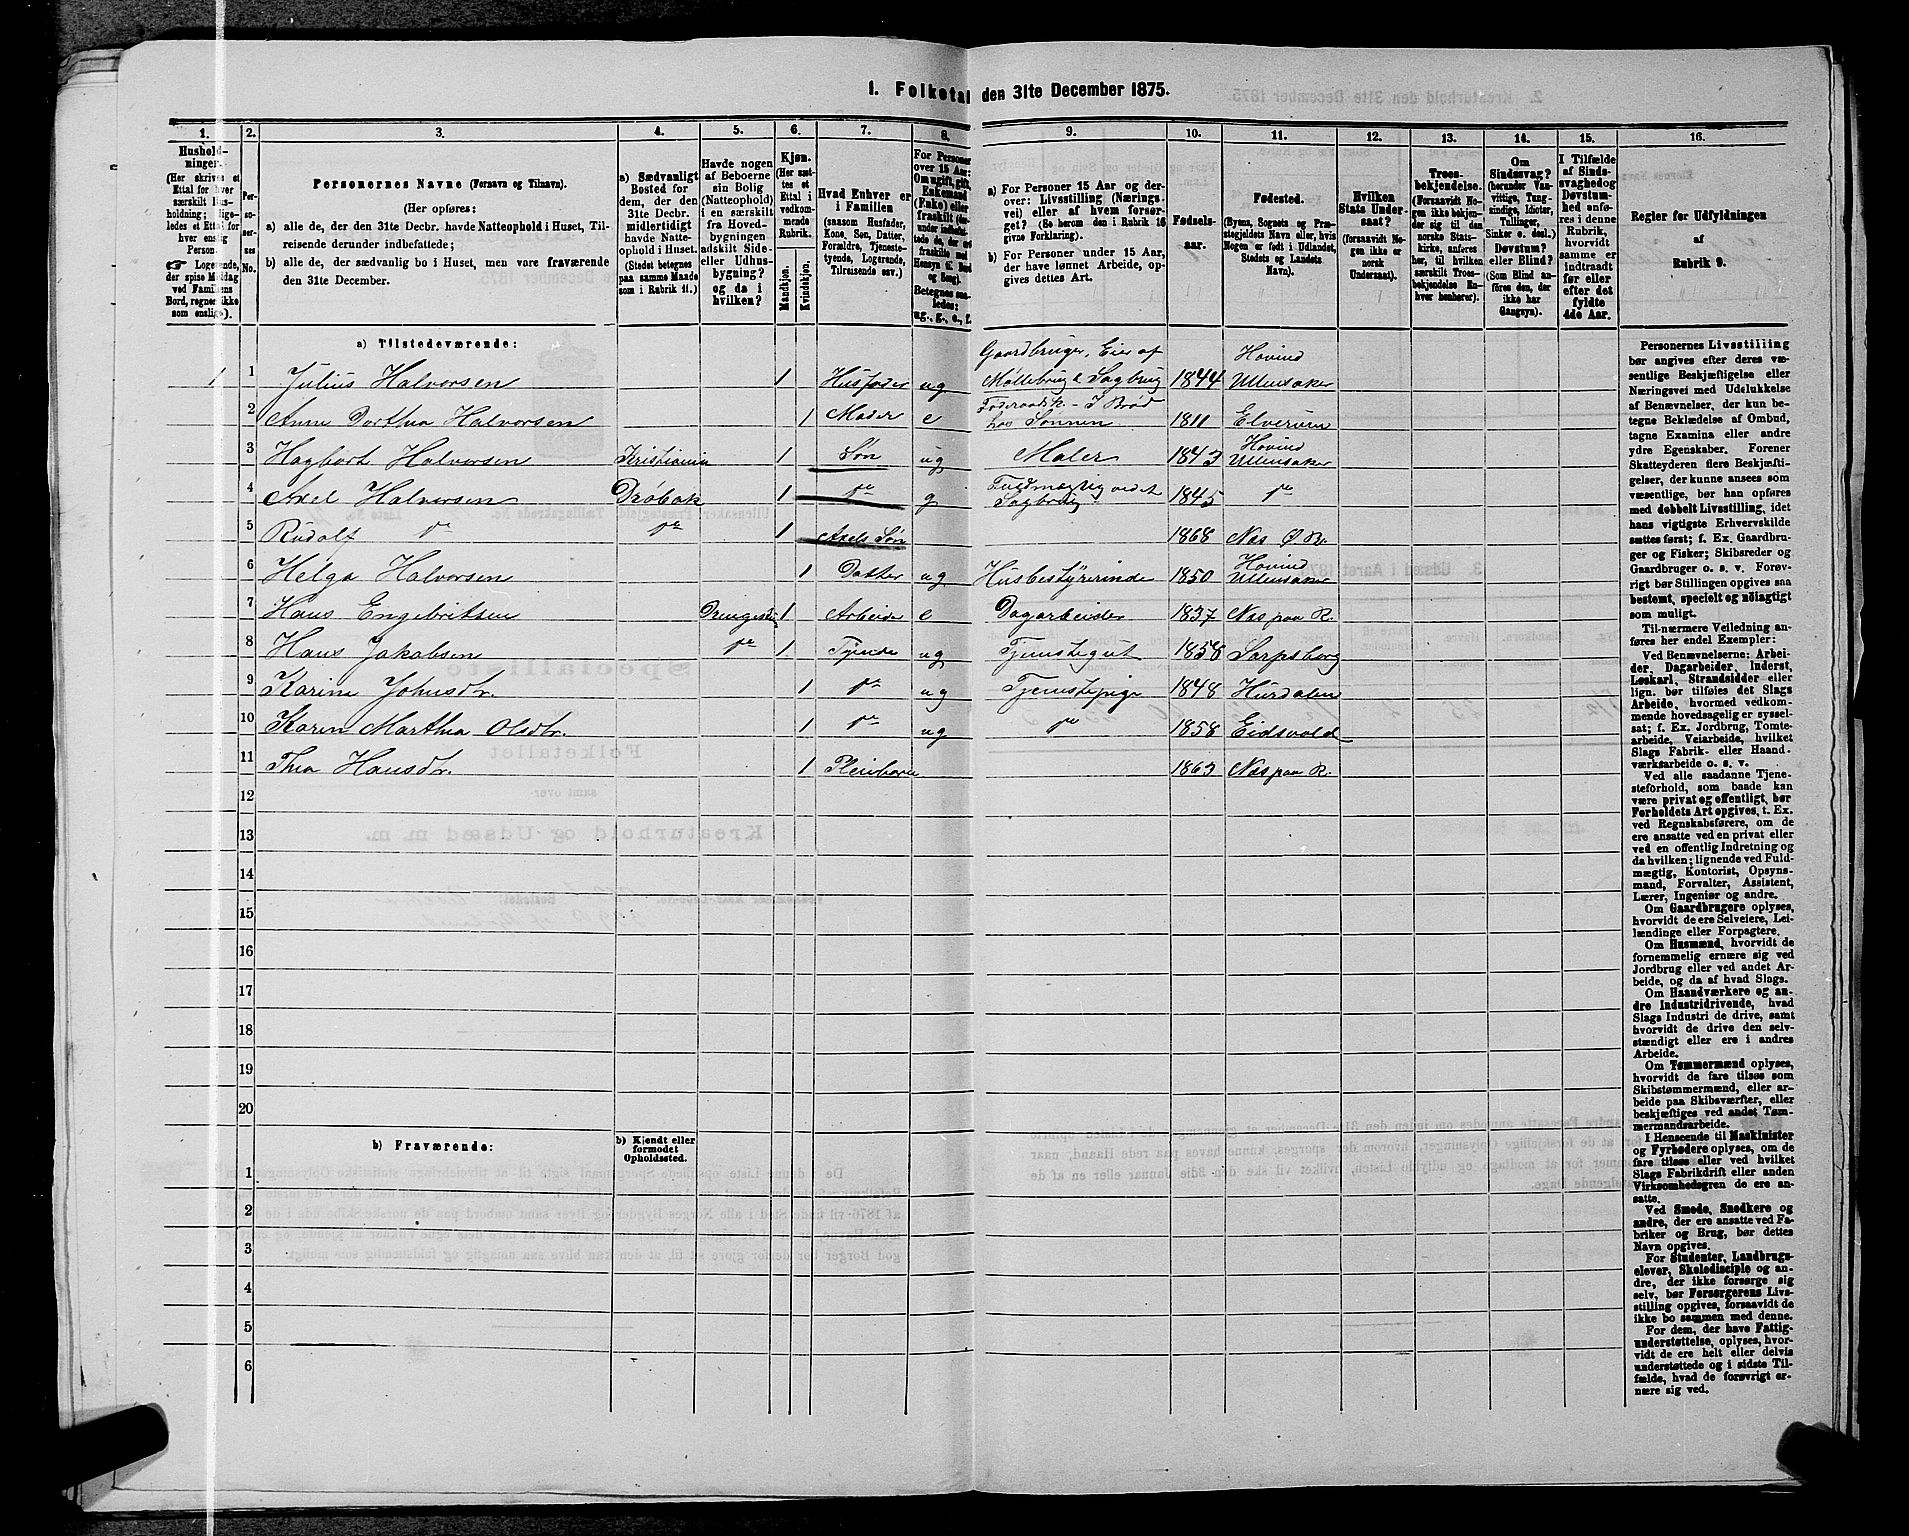 1. Folketal den 31te December 1875.
1. 2. 3. 4. 5. 6. 7. 8. 9. 10. 11. 12. 13. 14. 15. 16.
Hushold-
ninger.
(Her skrives et
Ettal for hver
særskilt Hus-
holdning; lige-
ledes et Ettal for
hver enslig
Person.
☞ Logerende,
der spise Middag
ved Familiens
Bord, regnes ikke
som enslige).
Per-
so-
ner-
nes
No.
Personernes Navne (Fornavn og Tilnavn).
(Her opføres:
a) alle de, der den 31te Decbr. havde Natteophold i Huset, Til-
reisende derunder indbefattede;
b) alle de, der sædvanlig bo i Huset, men vore fraværende
den 31te December.
a) Sædvanligt
Bosted for
dem, der den
31te Decbr.
midlertidigt
havde Natte-
ophold i Huset.
(Stedet betegnes
paa samme Maade
som i Rubrik 11.)
Havde nogen
af Beboerne
sin Bolig
(Natteophold)
i en særskilt
fra Hoved-
bygningen
adskilt Side-
eller Udhus-
bygning?
og da i
hvilken?
Kjøn.
(Her sæt-
tes et
Ettal i
vedkom-
mende
Rubrik.
Mandkjøn.
Kvindekjøn.
Hvad Enhver er
i Familien
(saasom Husfader,
Kone, Søn, Datter,
Forældre, Tjeneste-
tyende, Logerende,
Tilreisende osv.)
For Personer
over 15 Aar:
Om ugift, gift,
Enkemand
(Enke) eller
fraskilt
Betegnes saa-
ledes:
ug., g., e., f.
a) For Personer 15 Aar og der-
over: Livsstilling (Nærings-
vei) eller af hvem forsør-
get? (Se herom den i Rubrik 16
givne Forklaring).
b) For Personer under 15 Aar,
der have lønnet Arbeide, op-
gives dettes Art.
Fødsels-
aar.
Fødested.
(Byens, Sognets og Præ-
stegjeldets Navn eller, hvis
Nogen er født i Udlandet,
Stedets og Landets
Navn).
Hvilken
Stats Under-
saat?
(forsaavidt No-
gen ikke er
norsk
Undersaat).
Troes-
bekjendelse.
(Forsaavidt No-
gen ikke bekjen-
der sig til den
norske Stats-
kirke, anføres
her, til hvilken
særskilt Troes-
bekjendelse En-
hver henhører).
Om
Sindssvag?
(herunder Van-
vittige, Tung-
sindige, Idioter,
Tullinger,
Sinker o. desl.)
Døvstum?
eller Blind?
(Som Blind an-
føres den, der
ikke har
Gangsyn).
I Tilfælde
af Sinds-
svaghed og
Døvstum-
hed anfø-
res i denne
Rubrik,
hvorvidt
samme er
indtraadt
før eller
efter det
fyldte
4de Aar.
Regler for Udfyldningen
af
Rubrik 9.
a) Tilstedeværende:
1 1 Julius Halvorsen 1 Husfader ug Gaardbruger, Eier af Møllebrug & Sagbrug 1844 Hovind Ullensaker
2 Anne Dorthea Halvorsen 1 Moder e Føderaadsk - I Brød hos Sønnen 1811 Elverum
3 Hagbart Halvorsen Kristiania 1 Søn ug Maler 1843 Hovind Ullensaker
4 Axel Halvorsen Drøbak 1 do g Fuldmægtig vedet Sagbrug 1845 do
5 Rudolf do do 1 Axels Søn 1868 Næs Ø. R.
6 Helga Halvorsen 1 Datter ug Husbestyrerinde 1850 Hovind Ullensaker
7 Hans Engebritsen Drengestu 1 Arbeider e Dagarbeider 1837 Næs paa R.
8 Hans Jakobsen do 1 Tyende ug Tjenstegut 1858 Sarpsborg
9 Karine Johnsdr. 1 do ug Tjenstepige 1848 Hurdalen
10 Karen Marthea Olsdr. 1 do ug do 1858 Eidsvold
11 Thea Hansdr. 1 Pleiebarn 1863 Næs paa R.
12
13
14
15
16
17
18
19
20
b) Fraværende:
b) Kjendt eller
formodet
Opholdssted.
1
2
3
4
5
6
Personernes Livsstilling
bør angives efter deres væ-
sentlige Beskjæftigelse eller
Næringsvei med Udelukkelse
af Benævnelser, der kun be-
tegne Beklædelse af Ombud,
tagne Examina eller andre
ydre Egenskaber. Forener
Skatteyderen flere Beskjæfti-
gelser, der kunne ansees som
væsentlige, bør han opføres
med dobbelt Livsstilling, idet
hans vigtigste Erhvervskilde
sættes først; f. Ex. Gaardbru-
ger og Fisker; Skibsreder og
Gaardbruger o. s. v. Forøv-
rigt bør Stillingen opgives saa
bestemt, specielt og nøiagtigt
som muligt.
Til nærmere Veiledning an-
føres her endel Exempler:
Ved Benævnelserne: Arbei-
der, Dagarbeider, Inderst,
Løskarl, Strandsidder eller
lign. bør tilføies det Slags
Arbeide, hvormed vedkom-
mende hovedsagelig er syssel-
sat; f. Ex. Jordbrug, Tomte-
arbeide, Veiarbeide, hvilket
Slags Fabrik- eller Haand-
værksarbeide o. s. v.
Ved alle saadanne Tjene-
steforhold, som baade kan
være privat og offentligt, bør
Forholdets Art opgives, t. Ex.
ved Regnskabsførere, om de
ere ansatte ved en privat eller
ved en offentlig Indretning og
da hvilken; lignende ved Fuld-
mægtig, Kontorist, Opsyns-
mand, Forvalter, Assistent,
Lærer, Ingeniør og andre.
Om Gaardbrugere oplyses,
hvorvidt de ere Selveiere, Lei-
lændinge eller Forpagtere.
Om Husmænd, hvorvidt de
fornemmelig ernære sig ved
Jordbrug eller ved andet Ar-
beide, og da af hvad Slags.
Om Haandværkere og an-
dre Industridrivende, hvad
Slags Industri de drive, samt
hvorvidt de drive den selv-
stændigt eller ere i andres
Arbeide.
Om Tømmermænd oplyses,
hvorvidt de fare tilsøs som
Skibstømmermænd, eller ar-
beide paa Skibsværfter, eller
beskjæftiges ved andet Tøm-
mermandsarbeide.
I Henseende til Maskinister
og Fyrbødere oplyses, om de
fare tilsøs eller ved hvilket
Slags Fabrikdrift eller anden
Virksomhedsgren de ere an-
satte.
Ved Smede, Snedkere og
andre, der ere ansatte ved Fa-
briker og Brug, bør dettes
Navn opgives.
For Studenter, Landbrugs-
elever, Skoledisciple og an-
dre, der ikke forsørge sig
selv, bør Forsørgerens Livs-
stilling opgives, forsaavidt de
ikke bo sammen med denne.
For dem, der have Fattig-
understøttelse, oplyses, hvor-
vidt de ere helt eller delvis
understøttede og i sidste Til-
fælde, hvad de forøvrigt er-
nære sig ved.